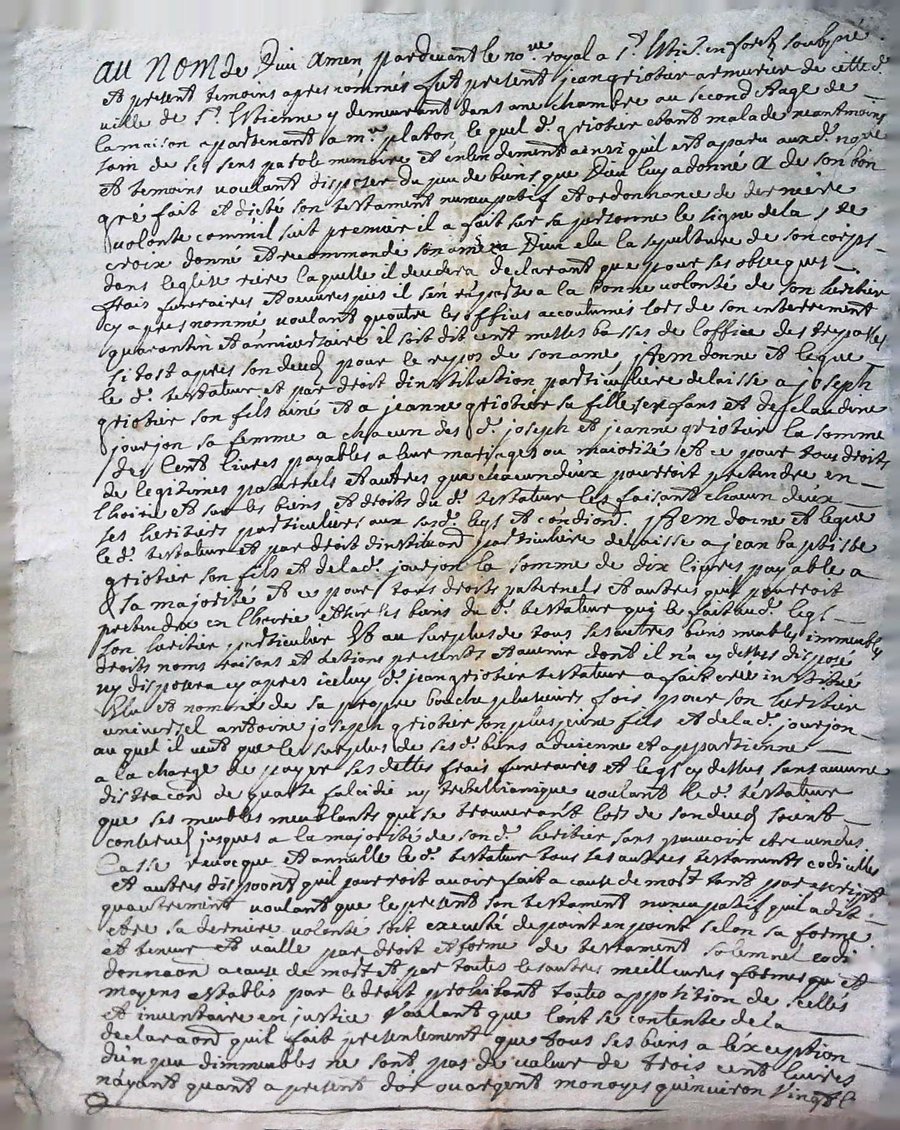 au nom de Dieu Amen pardevant le no.re royal a S.t Etie.e en forest soubsigné
et present temoins apres nommés fut present jean griotier armurier de cette d.
ville de S.t Etienne y demeurant dans une chambre au second etage de
la maison apartenant a m.re platon le quel d. griotier etant malade neantmoins
sain de ses sens parole memoire et entendement ainsi quil est aparu aux d. no.re
et temoins voulant disposer du peu de biens que Dieu luy a donné A de son bon
gré fait et dicté son testament nuncupatif et ordonnance de derniere
volonté comme il suit premier il a fait sur sa personne le signe de la s.te
croix donné et recommandé son ame a Dieu elu la sepulture de son corps
dans leglise riere laquelle il decedera declarant que pour ses obseques
frais funeraires et oeuvres pies il s'en raporte a la bonne volonté de son heritier
cy apres nommé voulant quoutre les offices accoutumés lors de son enterrement
quarantin et anniversaire il soit dit cent messes basses de loffice des trepassés
si tost apres son deceds pour le repos de son ame jtem donne et legue
le d. testateur et par droit dinstitution particuliere delaisse a joseph
griotier son fils ainé et a jeanne griotier sa fille ses enfans et de claudine
jourjon sa femme a chacun des d. joseph et jeanne griotier la somme
de cent livres payables a leur mariages ou majorité et ce pour tous droits
de legitimes paternels et autres que chacun deux pourroit pretendre en
lhoirie et sur les biens et droits du d. testateur les faisant chacun deux
ses heritiers particuliers aux sesd. legs et condiond. jtem donne et legue
le d. testateur et par droit dinstituaon particuliere delaisse a jean baptiste
griotier son fils et de la d. jourjon la somme de dix livres payable a
sa majorité et ce pour tous droits paternels et autres quil pourroit
pretendre en lhoirie et sur les biens du d. testateur qui le fait aud. legs
son heritier particulier Et au surplus de tous ses autres biens meubles immeubles
droits noms raisons et actions presents et avenir dont il n'a cy dessus disposé
ny disposera cy apres iceluy d. jean griotier testateur a fait créé institué
Elu et nommé de sa propre bouche plusieurs fois pour son heritier
universel antoine joseph griotier son plus jeune fils et de la d. jourjon
au quel il veut que le surplus de ses d. biens advienne et appartienne
a la charge de payer ses dettes frais funeraires et legs cy dessus sans aucune
distracon de quarte falcidie ny trebellianique voulant le d. testateur
que ses meubles meublantes qui se trouveront lors de son deceds soient
conservés jusques a la majorité de son d. heritier sans pouvoir etre vendus
Casse revocque et annulle le d. testateur tous ses autres testaments codicilles
et autres dispoons quil pourroit avoir fait a cause de mort tant par ecrit
quautrement voulant que le present son testament nuncupatif quil a dit
etre sa derniere volonté soit executé de point en point selon sa forme
et teneur et vaille par droit et forme de testament solemnel codi
donnaon a cause de mort et par toutes les autres meilleures formes
moyens establis par le droit prohibant toutes apposition de scellés
et inventaire en justice voulant que lont se contente de la
declaraon quil fait presentement que tous ses biens a lexception
d'un peu dimmeubles ne sont pas de valeur de trois cent livres
n'ayant quant a present d'or ou argent monoyes quenviron vingt